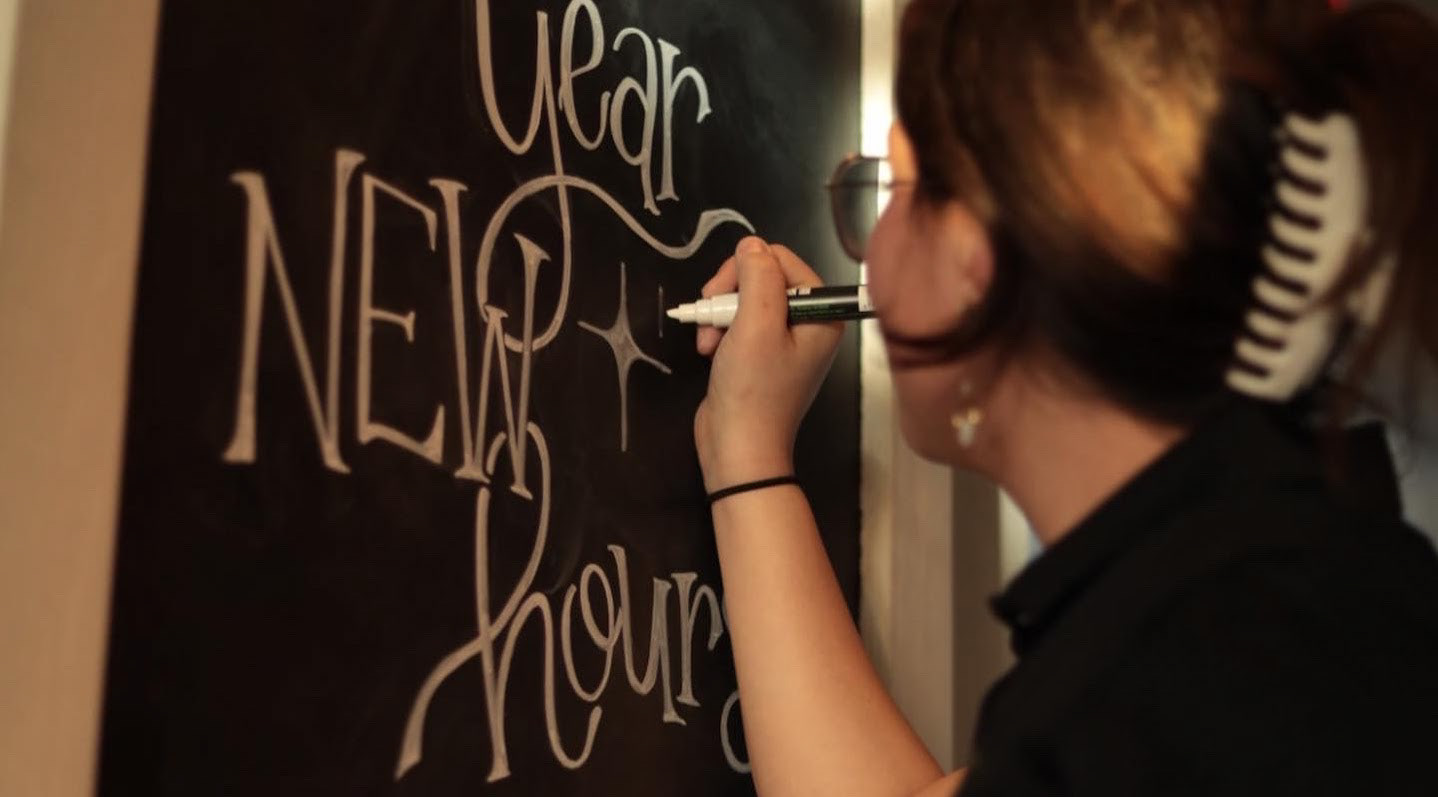 year
NEW
hours